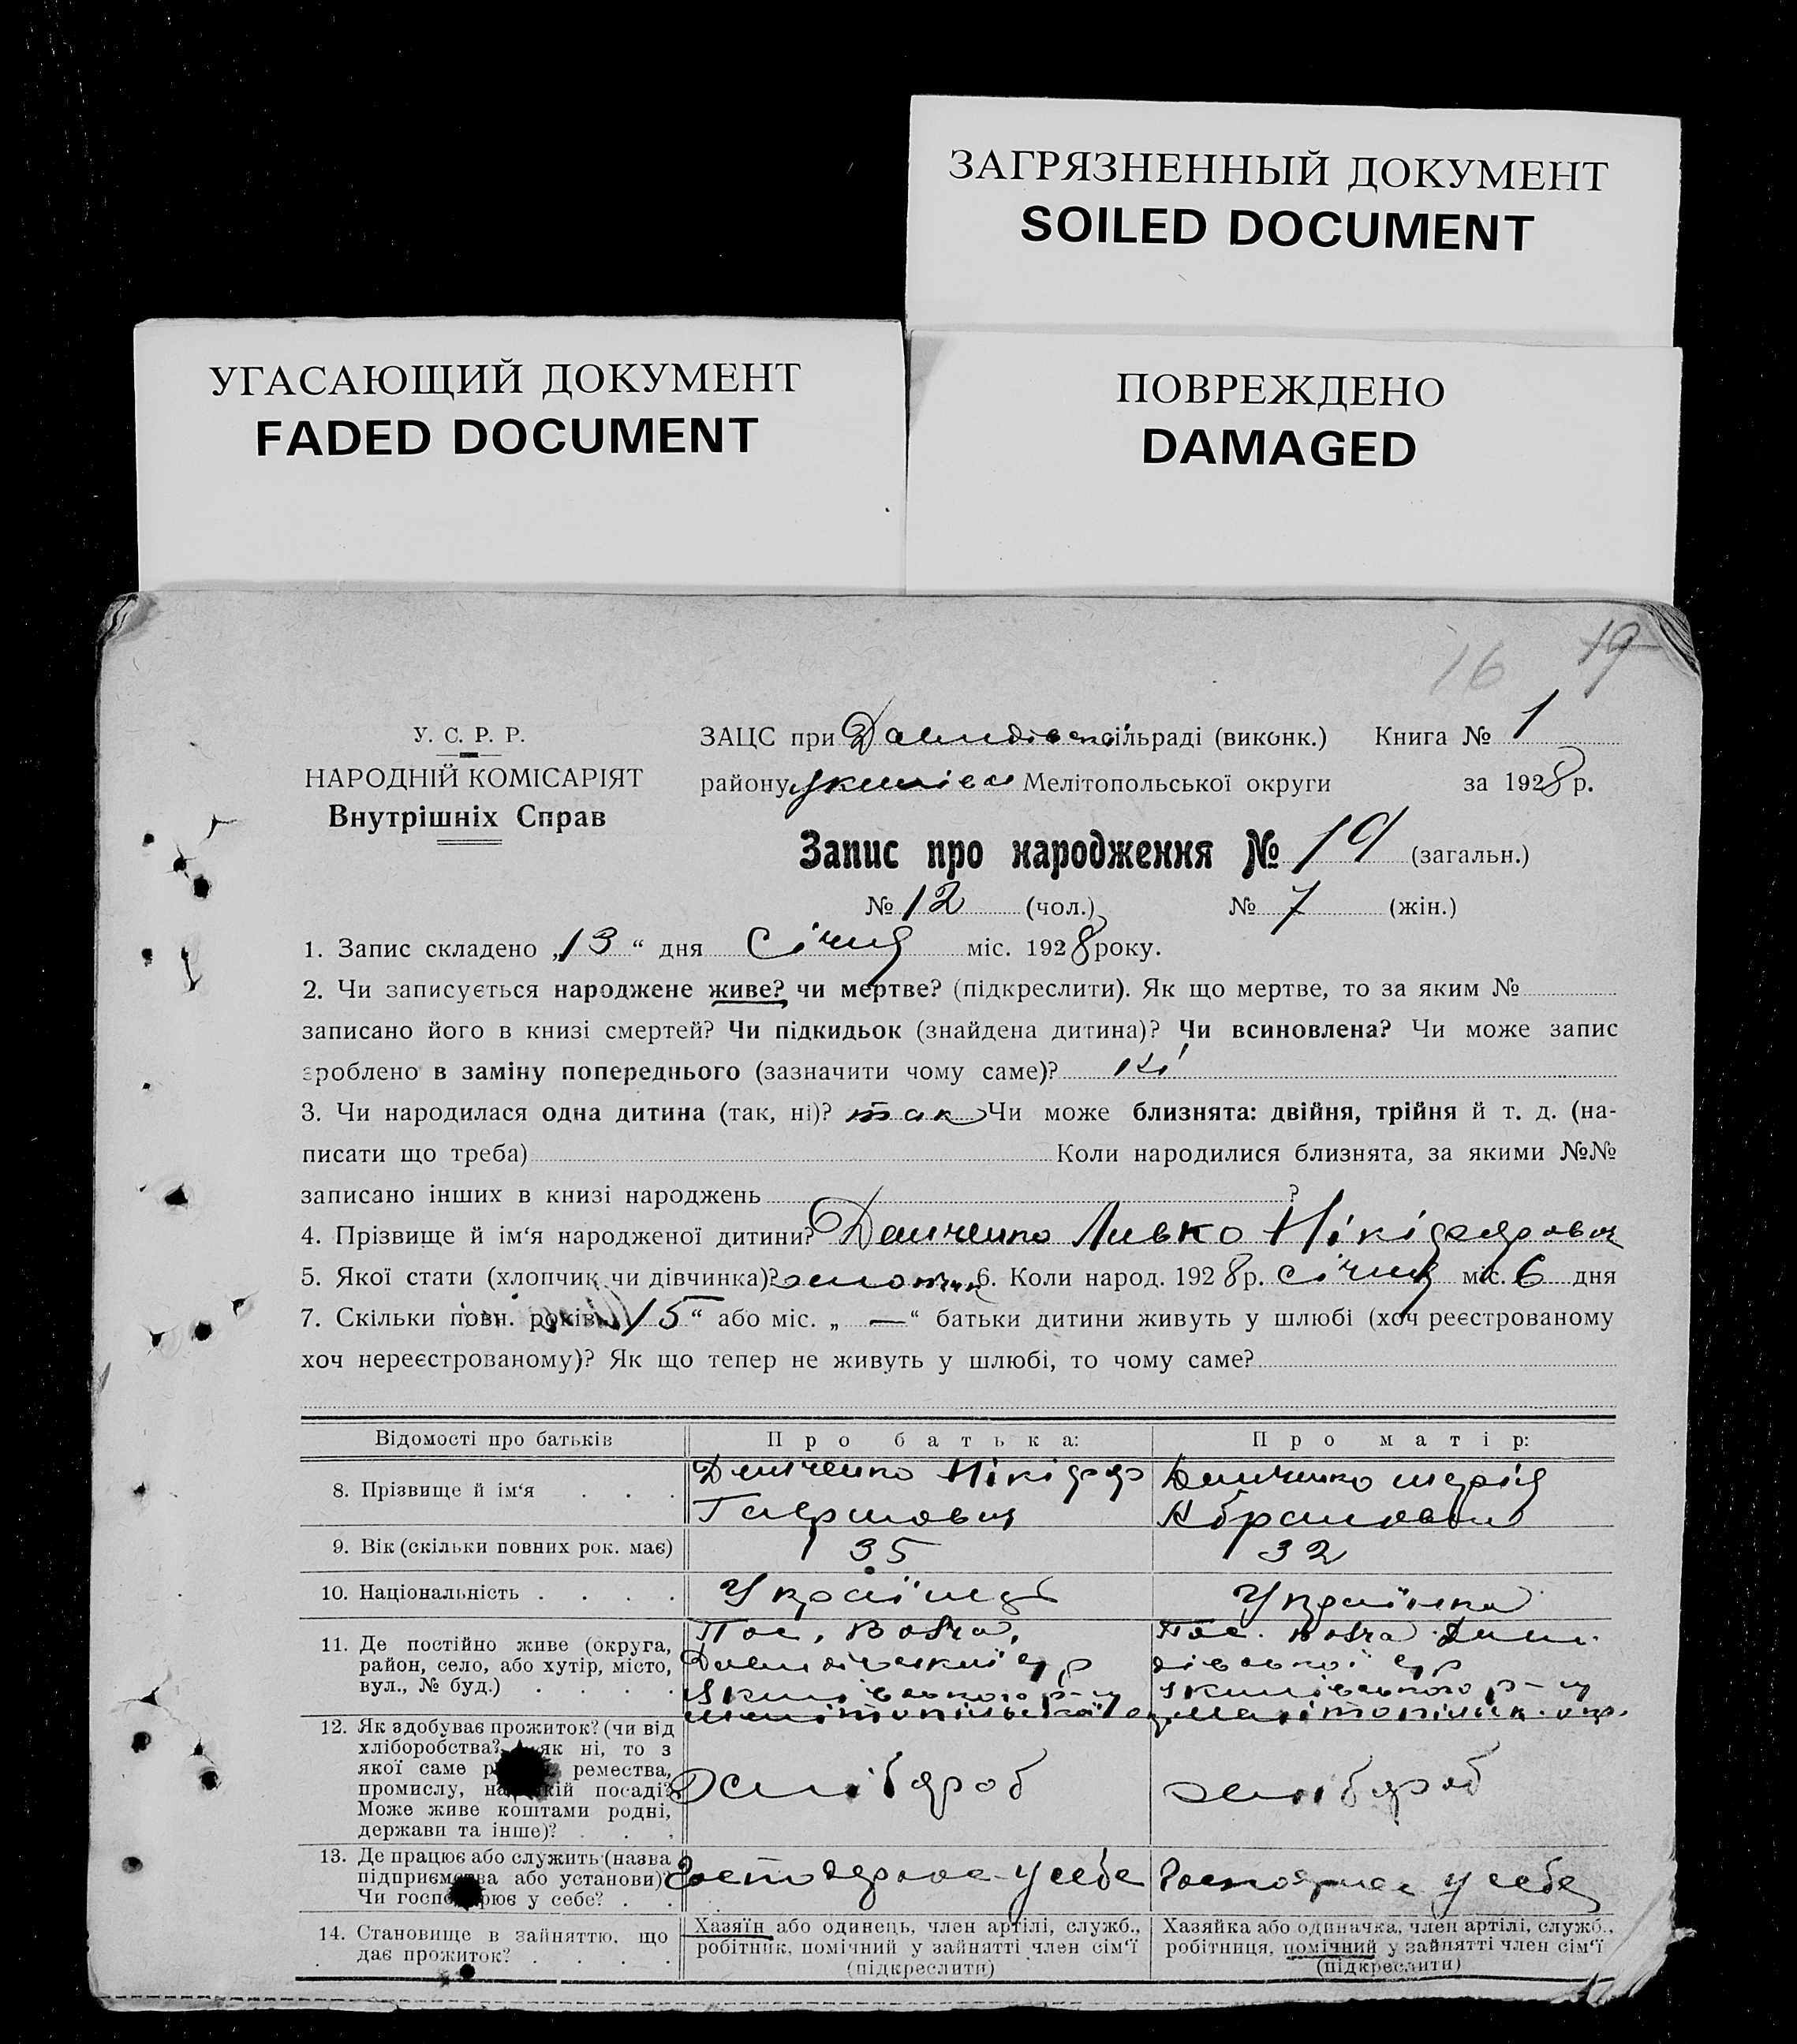 ЗАГРЯЗНЕННЫЙ ДОКУМЕНТ
SOILED DOCUMENT
УГАСАЮЩИЙ ДОКУМЕНТ
FADED DOCUMENT
ПОВРЕЖДЕНО
DAMAGED
16 19
У. С. Р. Р.
НАРОДНІЙ КОМІСАРІЯТ
Внутрішніх Справ
ЗАЦС при Давидівській сільраді (виконк.) Книга № 1
району Мелітопольської округи за 1928 р.
Запис про народження № 19 (загальн.)
№ 12 (чол.) № 7 (жін.)
1. Запис складено „13“ дня січня міс. 1928 року.
2. Чи записується народжене живе? чи мертве? (підкреслити). Як що мертве, то за яким №
записано його в книзі смертей? Чи підкидьок (знайдена дитина)? Чи всиновлена? Чи може запис
зроблено в заміну попереднього (зазначити чому саме)? ні
3. Чи народилася одна дитина (так, ні)? так Чи може близнята: двійня, трійня й т. д. (на-
писати що треба) Коли народилися близнята, за якими №№
записано інших в книзі народжень ?
4. Прізвище й ім‘я народженої дитини? Демченко Нікіфорович
5. Якої стати (хлопчик чи дівчинка)? хлопчик 6. Коли народ. 1928 р. січня міс. 6 дня
7. Скільки повн. років „15“ або міс. „—“ батьки дитини живуть у шлюбі (хоч реєстрованому
хоч нереєстрованому)? Як що тепер не живуть у шлюбі, то чому саме?
Відомості про батьків Про батька: Про матір:
8. Прізвище й ім‘я . . . Демченко Нікіфор Демченко Марія
Абрамовна
9. Вік (скільки повних рок. має) 35 32
10. Національність . . . . Українець Українка
11. Де постійно живе (округа, Пос. Вовча, Пос. Вовча
район, село, або хутір, місто,
вул., № буд.) . . . .
12. Як здобуває прожиток? (чи від
хліборобства? як ні, то з
якої саме ремества,
промислу, на посаді?
Може живе коштами родні,
держави та інше)? . . . хлібороб хлібороб
13. Де працює або служить (назва
підприємства або установи)?
Чи господарює у себе? . . господарює у себе господарює у себе
14. Становище в зайняттю, що
дає прожиток? . . . .
Хазяїн або одинець, член артілі, служб.,
робітник, помічний у зайнятті член сім‘ї
(підкреслити)
Хазяйка або одиначка, член артілі, служб.,
робітниця, помічний у зайнятті член сім‘ї
(підкреслити)